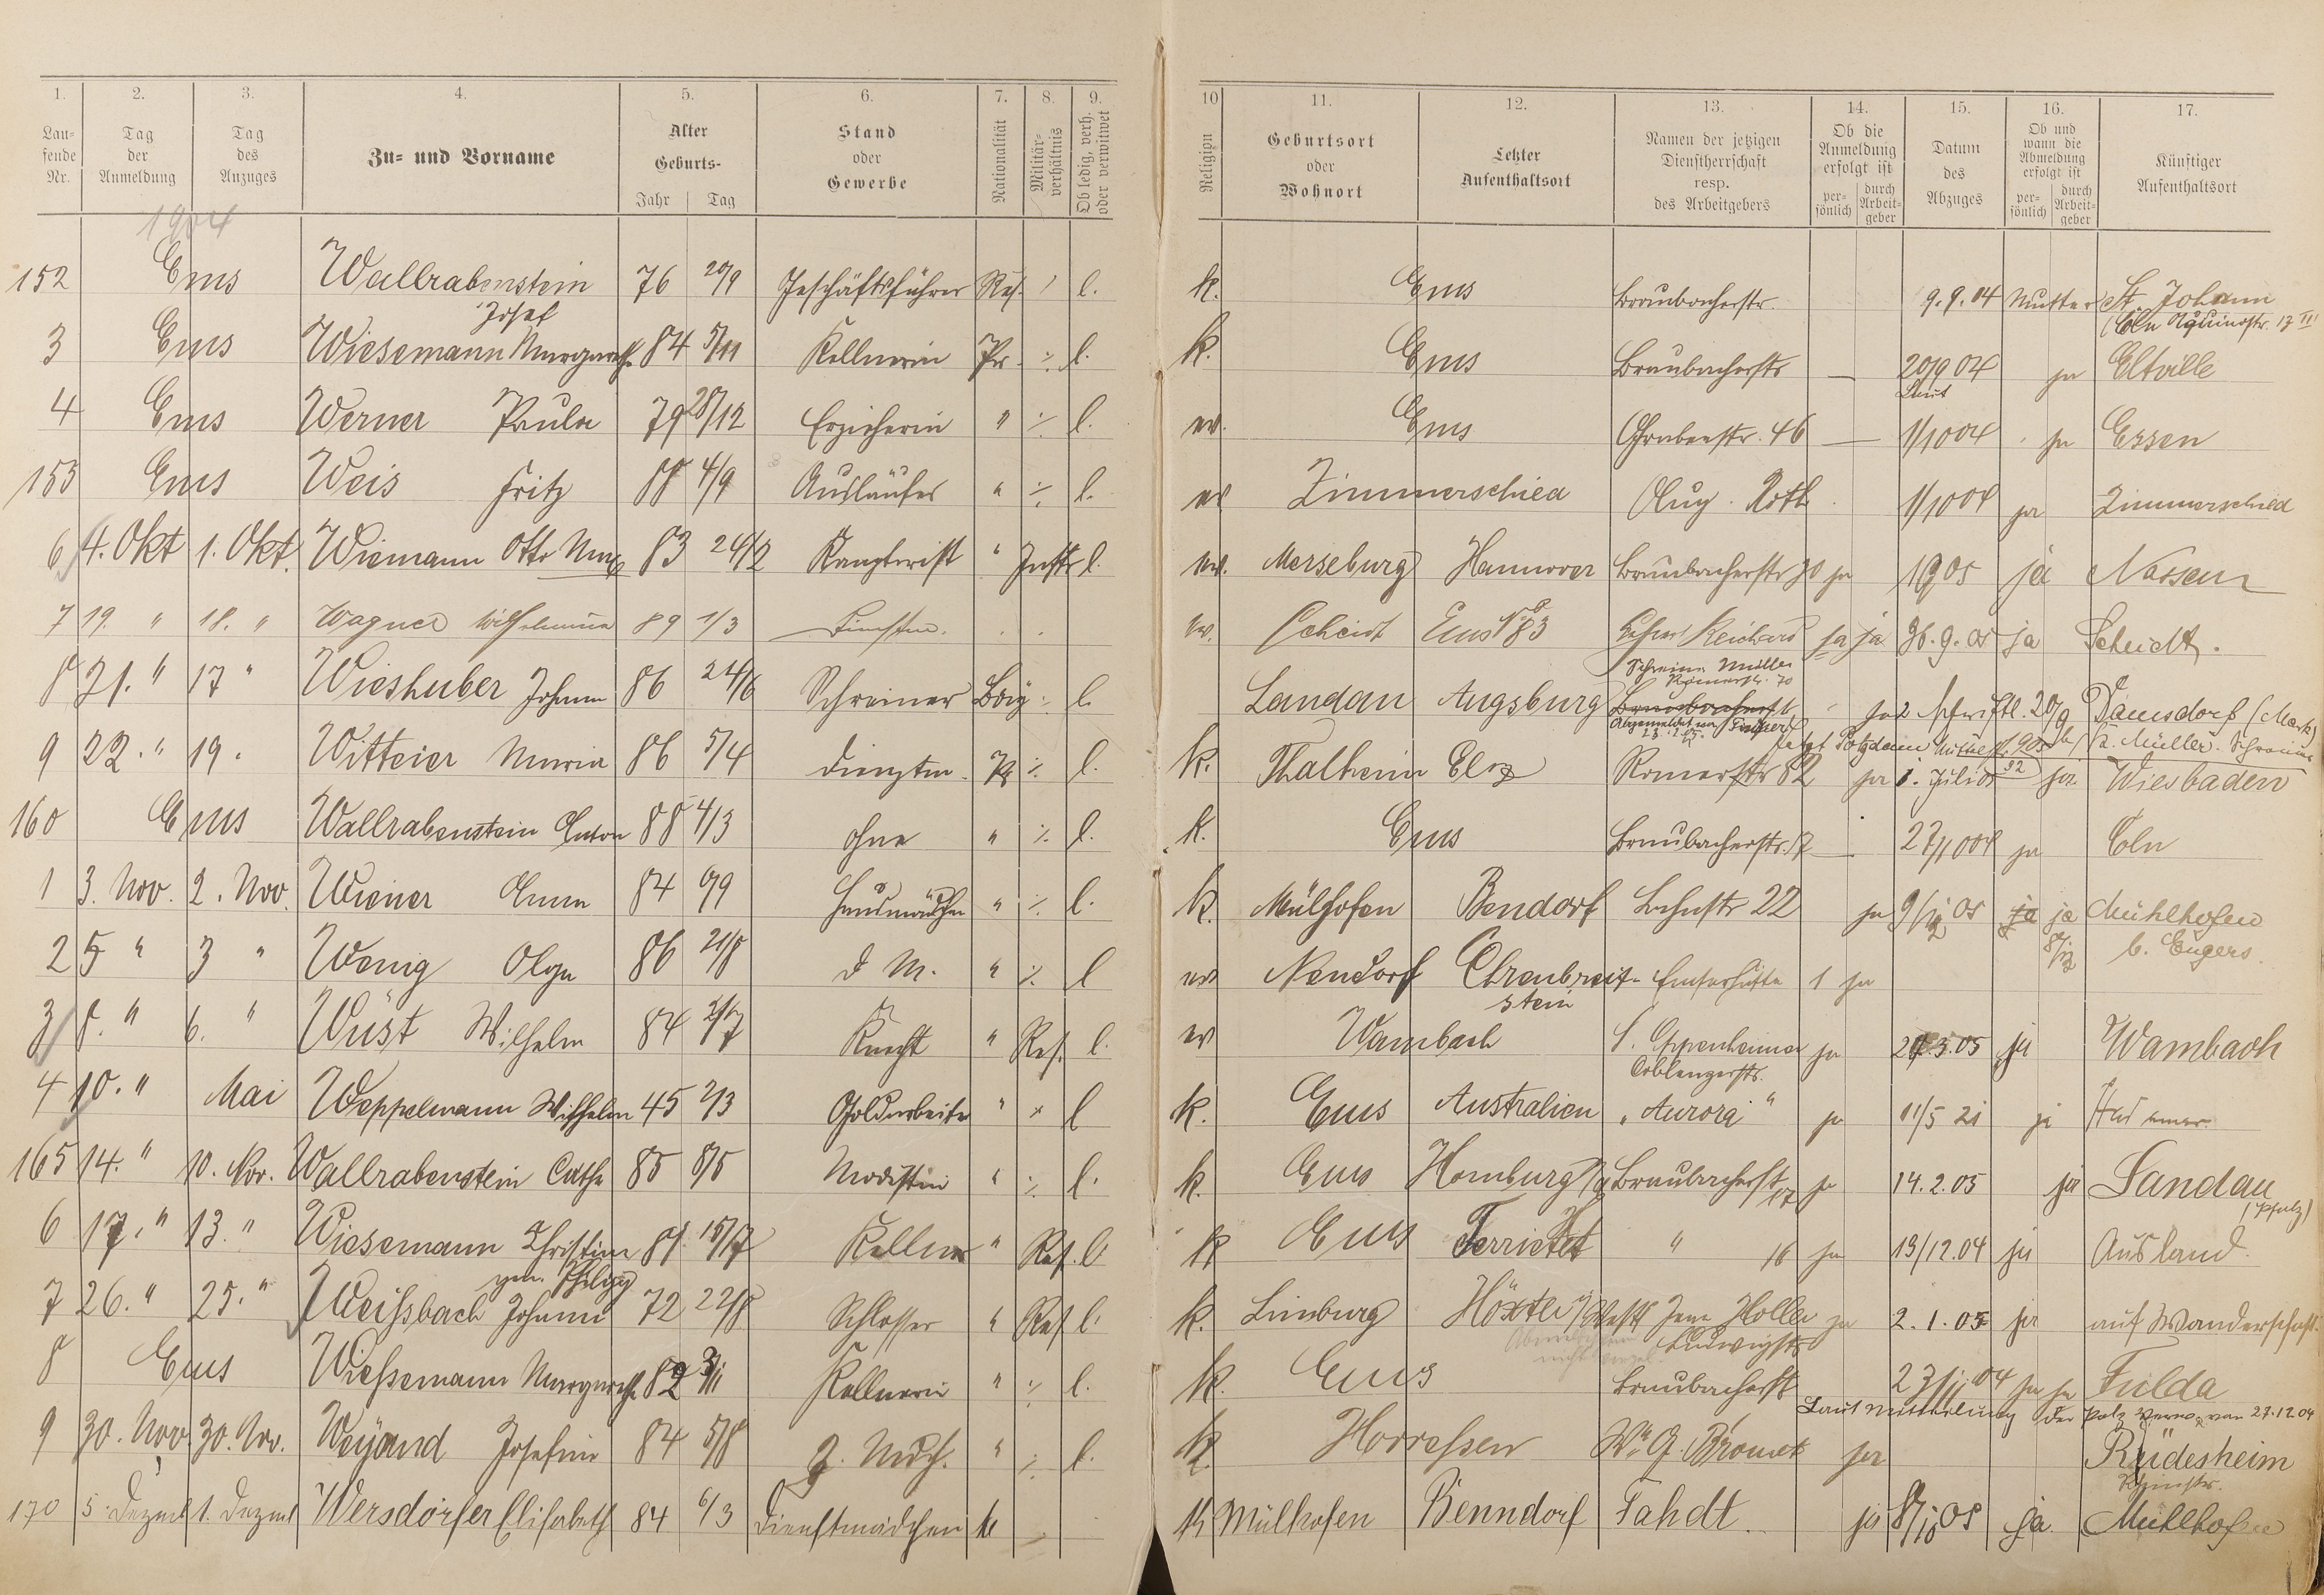 1. 2. 3. 4. 5. 6. 7. 8. 9. 10 11. 12. 13. 14. 15. 16. 17.
Lau-
fende
Nr.
Tag
der
Anmeldung
Tag
des
Anzuges
Zu- und Vorname
Alter
Geburts-
Jahr Tag
Stand
oder
Gewerbe
Nationalität
Militär-
verhältnis
Ob ledig, verh.
oder verwitwet
Religion
Geburtsort
oder
Wohnort
Letzter
Aufenthaltsort
Namen der jetzigen
Dienstherrschaft
resp.
des Arbeitgebers
Ob die
Anmeldung
erfolgt ist
per-
sönlich
durch
Arbeit-
geber
Datum
des
Abzuges
Ob und
wann die
Abmeldung
erfolgt ist
per-
sönlich
durch
Arbeit-
geber
Künftiger
Aufenthaltsort
1904
152 Ems Wallrabenstein 76 20/9 Geschäftsführer Res. l. k. Ems Braubacherstr. 9.9.04 Mutter St. Johann
Josef
3 Ems Wiesemann Margareth 84 5/11 Kellnerin Pr. ·/. l. k. Ems Braubacherstr — 20/9 04 ja Eltville
4 Ems Werner Paula 79 28/12 Erzieherin " ·/. l. ev. Ems Grabenstr. 46 — 1/10 04 ja Essen
153 Ems Weis Fritz 88 4/9 Ausläufer " ·/. l. ev Zimmerschied Aug. Roth 1/10 04 ja Zimmerschied
6 4. Okt 1. Okt. Wiemann Otto Max 83 24/12 Kanzleist " l. ev. Merseburg Hannover Braubacherstr 30 ja ja Nassau
7 19. " 18. " Wagner Wilhelmine 89 1/3 ev. Scheidt Ems Reichard ja ja 26.9.05 ja Scheidt.
8 21. " 17 " Wieshuber Johann 86 24/6 Schreiner Bay ·/. l. Landau Augsburg ja 20/9 Damsdorf (Mark)
Schreiner Müller
Römerstr. 70
9 22. " 19. Witteier Maria 86 5/4 Pr ·/. l. k. Thalheim Elz Römerstr 82 ja 1. Juli 05 ja Wiesbaden
160 Ems Wallrabenstein Anton 88 4/3 ohne " ·/. l. k. Ems Braubacherstr. 17 — 27/10 04 ja Cöln
1 3. Nov. 2. Nov. Wiener Anna 84 Hausmädchen " ·/. l. k. Mülhofen Bendorf Bahnstr 22 ja 05 ja ja Mühlhofen
b. Engers.
2 5 " 3 " Wenig Olga 86 21/8 d M. " ·/. l ev Nendorf Ehrenbreit- Emserhütte 1 ja
stein
3 8. " 6. " Wüst Wilhelm 84 Knecht " Res. l. ev Wambach S. Oppenheimer ja 3.05 ja Wambach
Coblenzerstr.
4 10. " Mai Weppelmann Wilhelm 45 2/3 Goldarbeiter " l k. Ems Australien „Aurora" ja 11/5 21 ja
165 14. " 10. Nov. Wallrabenstein Cath 85 8/5 Modistin " ·/. l. k. Ems Homburg Braubacherstr 17 ja 14.2.05 ja Landau
(Pfalz)
6 17. " 13. " Wiesemann Christian 81 15/7 Kellner " Res. l. k Ems Territet " 16 ja 13/12.04 ja Ausland.
gen. Philipp
7 26. " 25. " Weißsbach Johann 72 22/8 Schlosser " Res l. k. Limburg Höxter Holler ja 2.1.05 ja auf Wanderschaft.
Ludwigstr
8 Ems Wießemann Margareth 82 Kellnerin " ·/. l. k. Ems Braubacherstr 04 ja ja Fulda
Laut Mitteilung der Polz Verw. von 27.12.04
9 30. Nov. 30. Nov. Weyand Josefine 84 5/8 " ·/. l. k Horressen ja Rüdesheim
Rheinstr.
170 5. Dezmb 1. Dezmb Wersdörfer Elisabeth 84 6/3 Dienstmädchen k Mülhofen Benndorf Fahdt ja 05 ja. Mühlhofen